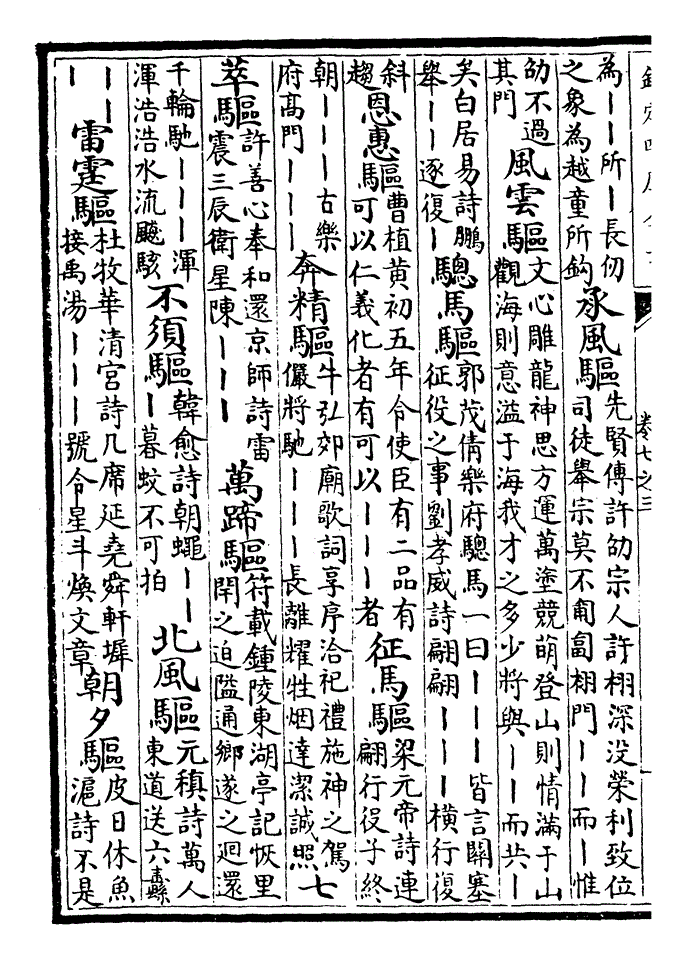 卷七之三
為丨丨所丨長仞
之象為越童所鈎
承風驅
先賢傳許劭宗人許栩深没榮利致位
司徒舉宗莫不匍匐栩門丨丨而丨惟
劭不過
其門
風雲驅
文心雕龍神思方運萬塗競萌登山則情滿于山
觀海則意溢于海我才之多少將與丨丨而共丨
矣白居易詩鵬
舉丨丨逐復丨
驄馬驅
郭茂倩樂府驄馬一曰丨丨丨皆言關塞
征役之事劉孝威詩翩翩丨丨丨橫行復
斜
趨
恩惠驅
曹植黄初五年令使臣有二品有
可以仁義化者有可以丨丨丨者
征馬驅
梁元帝詩連
翩行役子終
朝丨丨丨古樂
府髙門丨丨丨
奔精驅
牛弘郊廟歌詞享序洽祀禮施神之駕
儼將馳丨丨丨長離耀牲烟達潔誠照七
萃驅
許善心奉和還京師詩雷
震三辰衛星陳丨丨丨
萬蹄驅
符載鍾陵東湖亭記恢里
閈之迫隘通鄉遂之迴還
千輪馳丨丨丨渾
渾浩浩水流颷駭
不須驅
韓愈詩朝蠅丨丨
丨暮蚊不可拍
北風驅
元稹詩萬人
東道送六纛
丨丨
丨
雷霆驅
杜牧華清宮詩几席延堯舜軒墀
接禹湯丨丨丨號令星斗煥文章
朝夕驅
皮日休魚
滬詩不是